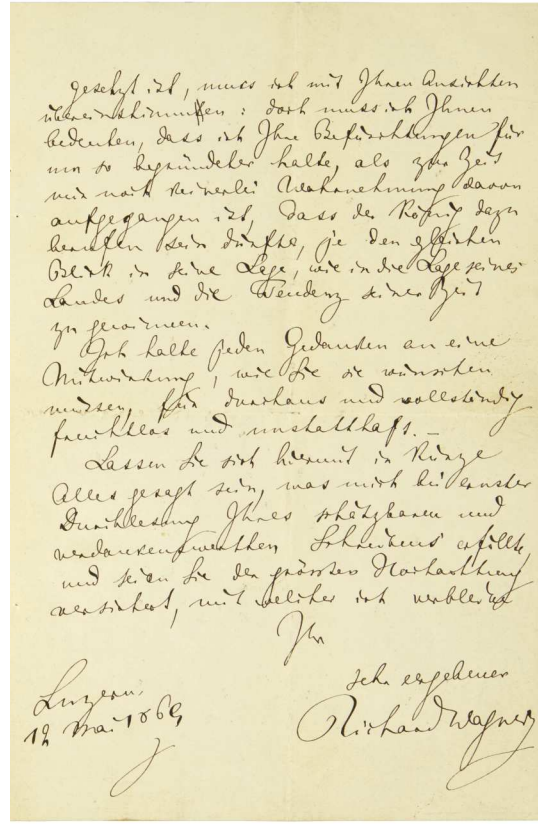 gesetzt ist, muss ich mit Ihnen Ansichten
übereinstimmen: doch muss ich Ihnen
bedeuten, dass ich Ihre Befürchtungen für
um so begründeter halte, als zur Zeit
mir noch keinerlei Wahrnehmung davon
aufgegangen ist, dass der König dazu
berufen sein dürfte, je den gleichen
Blick in seine Lage, wie in die Lage seines
Landes und die Tendenz seiner Zeit
zu gewinnen.
Ich halte jeden Gedanken an eine
Mitwirkung, wie Sie sie wünschen
müssen, für durchaus und vollständig
fruchtlos und unstatthaft. —
Lassen Sie sich hiermit in Kürze
Alles gesagt sein, was mich bei ernster
Durchlesung Ihres schätzbaren und
verdankenswerthen Schreibens erfüllte,
und seien Sie der grössten Hochachtung
versichert, mit welcher ich verbleibe
Ihr
sehr ergebener
Richard Wagner
Luzern.
12 Mai 1869